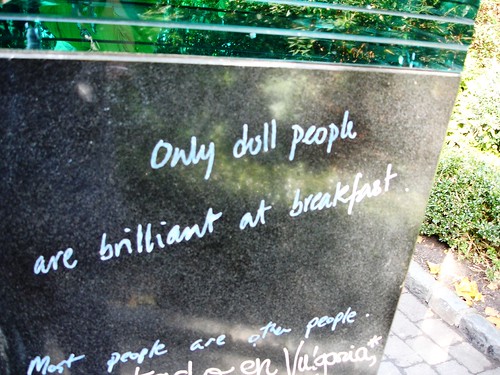 Only dull people
are brilliant at breakfast.
Most people are other people.
en Vulgaria,